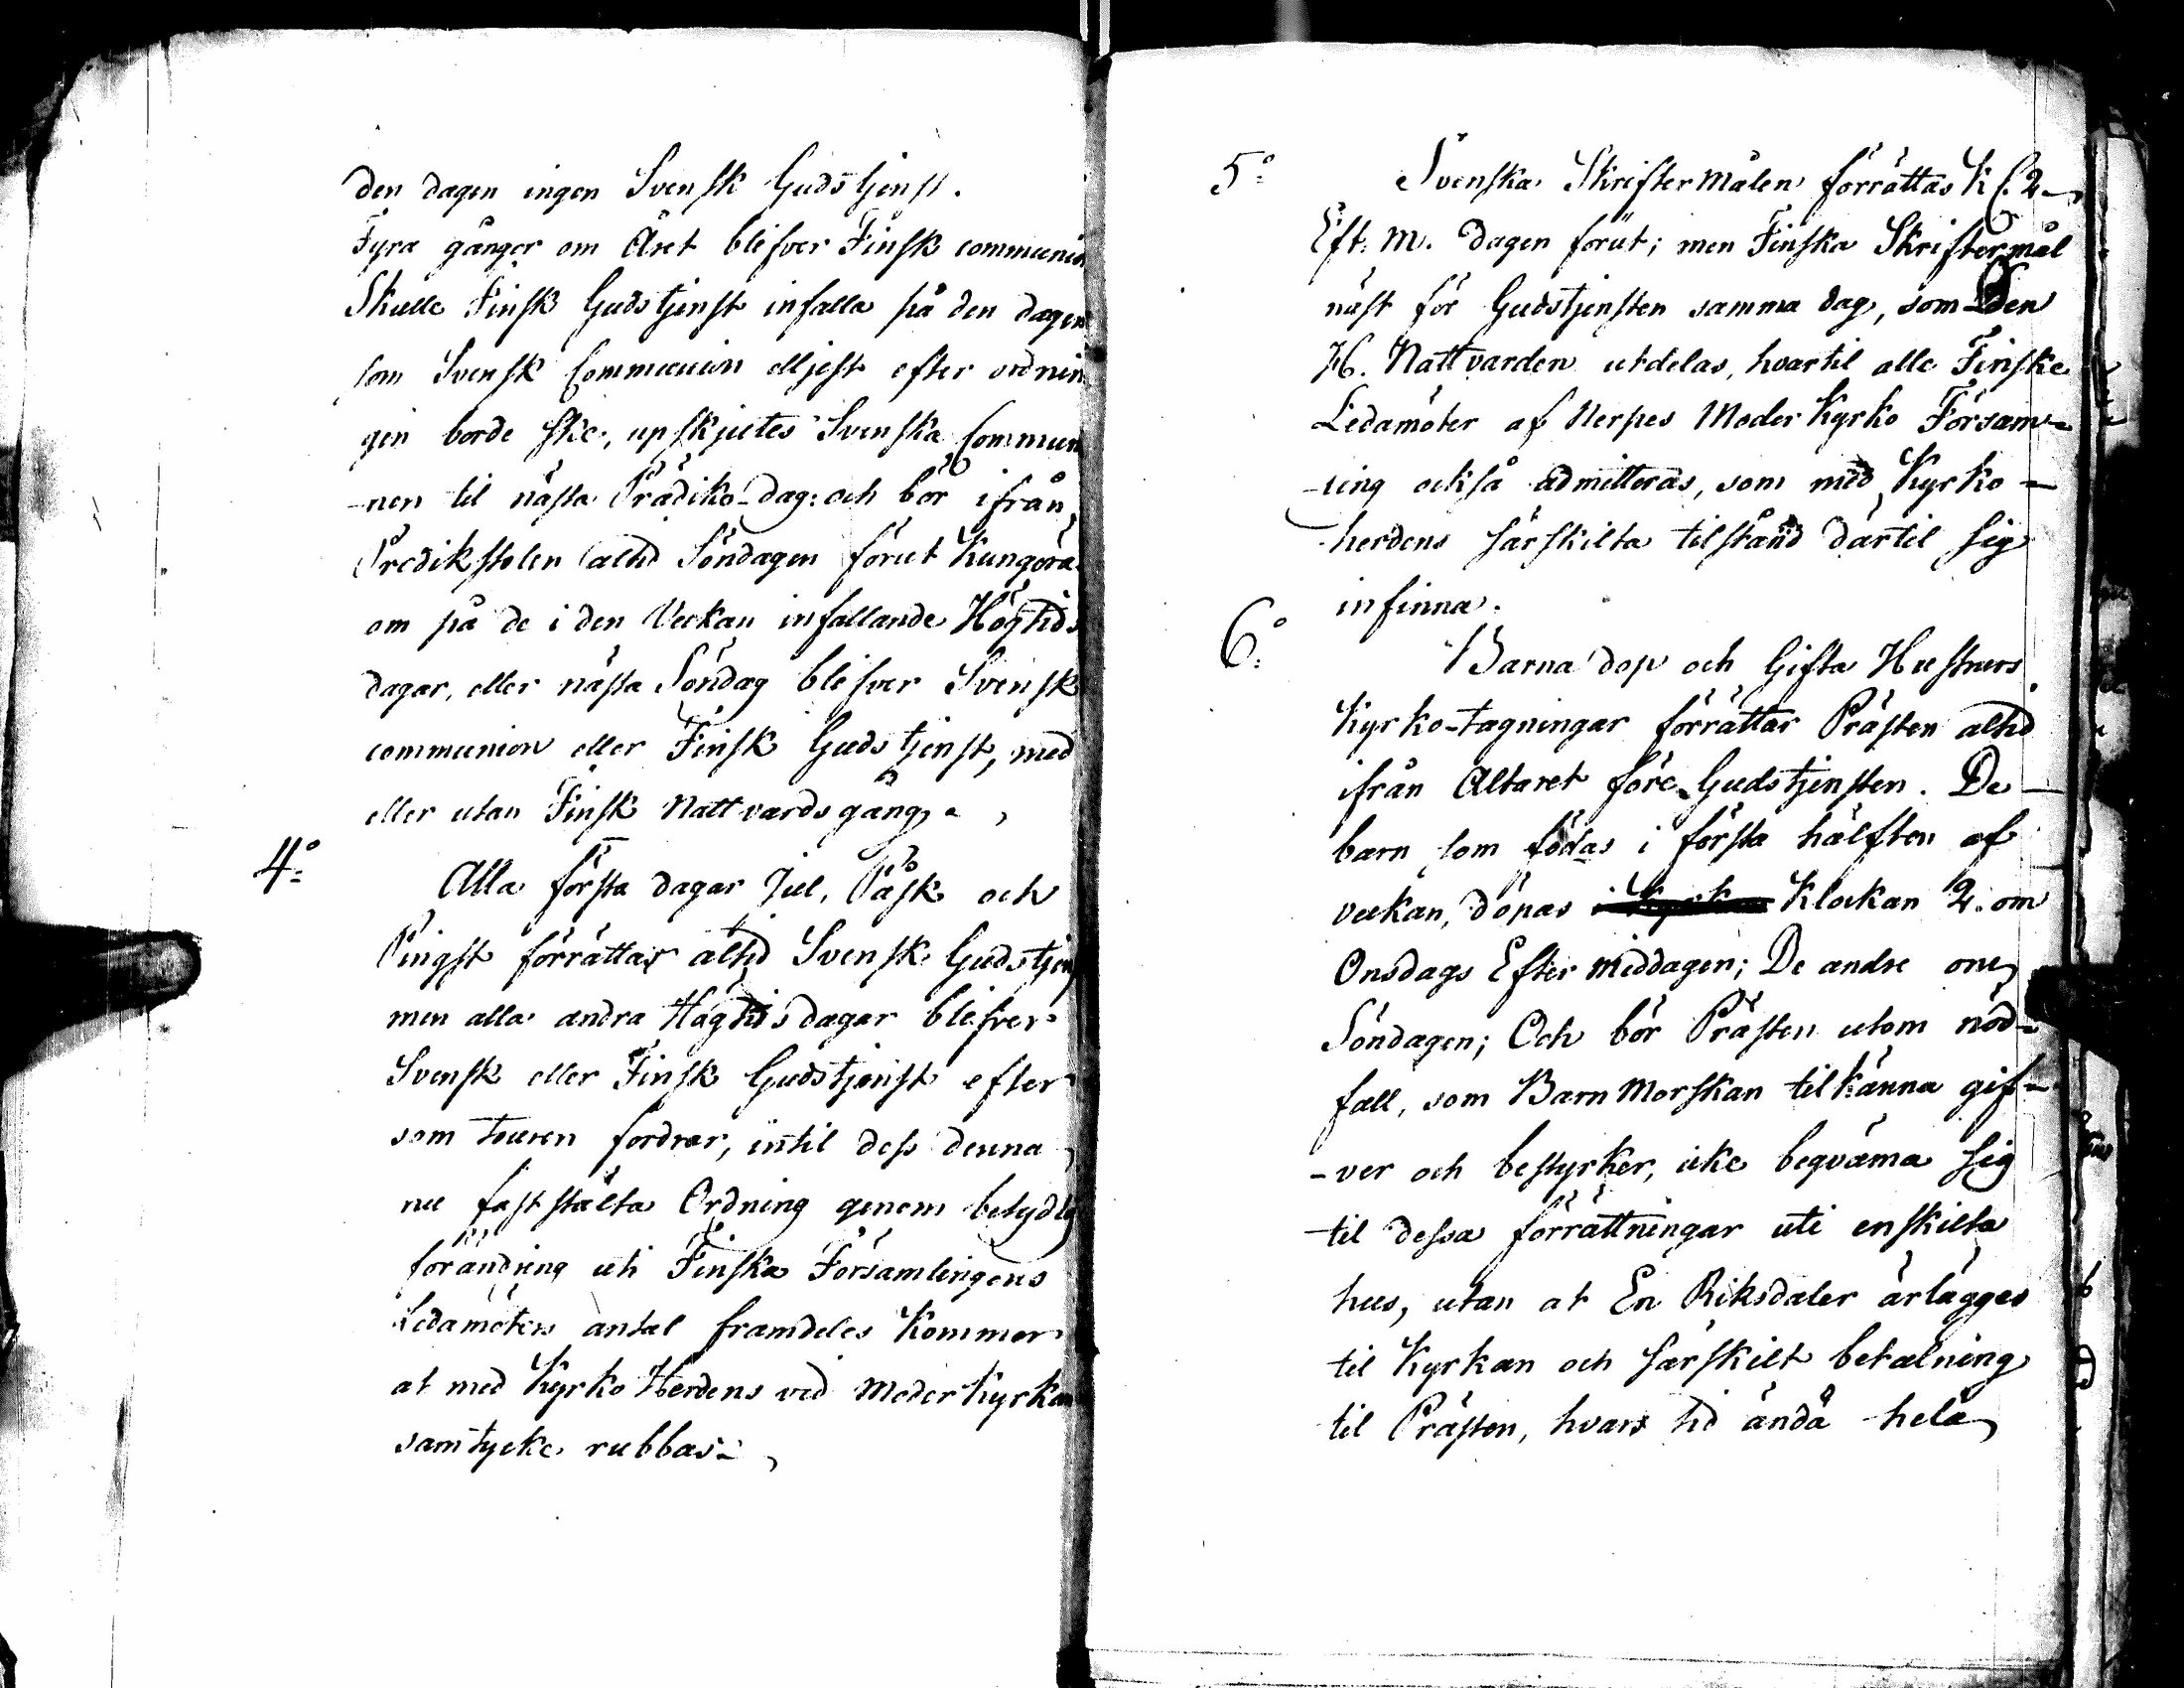 den dagen ingen Svensk Gudstjenst.
Fyra gånger om Året blifver Finsk communion
Skulle Finsk Gudstjenst infalla på den dagen
som Svensk Communion elljest efter ordnin
gen borde ske, upskjutes Svenska Commun
-nen til nästa Prädiko-dag: och bör ifrån
Predikstolen altid Söndagen förut Kungöra
om på de i den Veckan infallande Högtids
dagar, eller nästa Söndag blifver Svensk
communion eller Finsk Gudstjenst, med
eller utan Finsk Nattvardsgång.
4:o Alla första dagar Jul, Påsk och
Pingst förrättas altid Svensk Gudstjen
men alla andra Högtidsdagar blifver
Svensk eller Finsk Gudstjenst efter
som touren fordrar, intil dess denna
nu faststälta Ordning genom betydlig
förändring uti Finska Församlingens
Ledamöters antal framdeles Kommer
at med KyrkoHerdens vid ModerKyrkan
samtycke rubbas.
5:o Svenska Skriftermålen förrättas Kl. 2
Eft: M. dagen förut; men Finska Skriftermål
näst för Gudstjensten samma dag, som den
H. Nattvarden utdelas, hvartil alle Finske
Ledamöter af Nerpes ModerKyrko Försam-
-ling också admitteras, som med Kyrko-
-herdens särskilta tilstånd därtil sig
infinna.
6:o Barna dop och Gifta Hustrurs
Kyrko-tagningar förrättar Prästen altid
ifrån Altaret före Gudstjensten. De
barn som födas i första hälften af
veckan, döpas i Kyrkan Klockan 2. om
Onsdags Eftermiddagen; De andre om
Söndagen; Och bör Prästen utom nöd-
fall, som BarnMorskan tilkänna gif-
-ver och bestyrker, icke beqväma sig
til dessa förrättningar uti enskilta
hus, utan at En Riksdaler ärlägges
til Kyrkan och särskilt betalning
til Prästen, hvars tid ändå hela